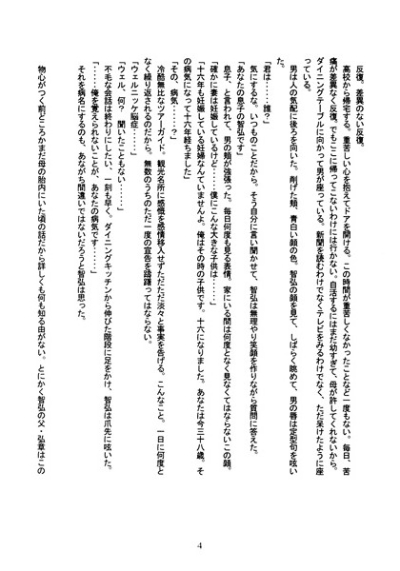 反復。差異のない反復。
高校から帰宅する。重苦しい心を抱えてドアを開ける。この時間が重苦しくなかったことなど一度もない。毎日、苦
痛が差異なく反復。でもここに帰ってこないわけには行かない。自活するにはまだ幼すぎて、母が許してくれないから。
ダイニングテーブルに向かって男が座っている。新聞を読むわけでなくテレビをみるわけでなく、ただ呆けたように座
っている。
男は人の気配に後ろを向いた。削げた頬、青白い顔の色。智弘の顔を見て、しばらく眺めて、男の唇は定型句を呟い
た。
「君は・・・・誰？」
気にするな。いつものことだから。そう自分に言い聞かせて、智弘は無理やり笑顔を作りながら質問に答えた。
「あなたの息子の智弘です」
息子、と言われて、男の頬が強張った。毎日何度も見る表情。家にいる間は何度となく見なくてはならないこの顔。
「確かに妻は妊娠しているけど・・・・僕にこんな大きな子供は・・・・」
「十六年も妊娠している妊婦なんていませんよ。俺はその時の子供です。十六になりました。あなたは今三十八歳。そ
の病気になって十六年経ちました」
「その、病気・・・・？」
冷酷無比なツアーガイド。観光名所に感慨を感情移入せずただただ淡々と事実を告げる。こんなこと。一日に何度と
なく繰り返されるのだから。無数のうちのただ一度の宣告を躊躇ってはならない。
「ウェルニッケ脳症・・・・」
「ウェル、何？　聞いたこともない・・・・」
不毛な会話は終わりにしたい、一刻も早く。ダイニングキッチンから伸びた階段に足をかけ、智弘は爪先に呟いた。
「・・・・俺を覚えられないことが、あなたの病気です・・・・」
それを病名にするのも、あながち間違いではないだろうと智弘は思った。
物心がつく前どころかまだ母の胎内にいた頃の話だから詳しくも何も知る由がない。とにかく智弘の父・弘章はこの
4